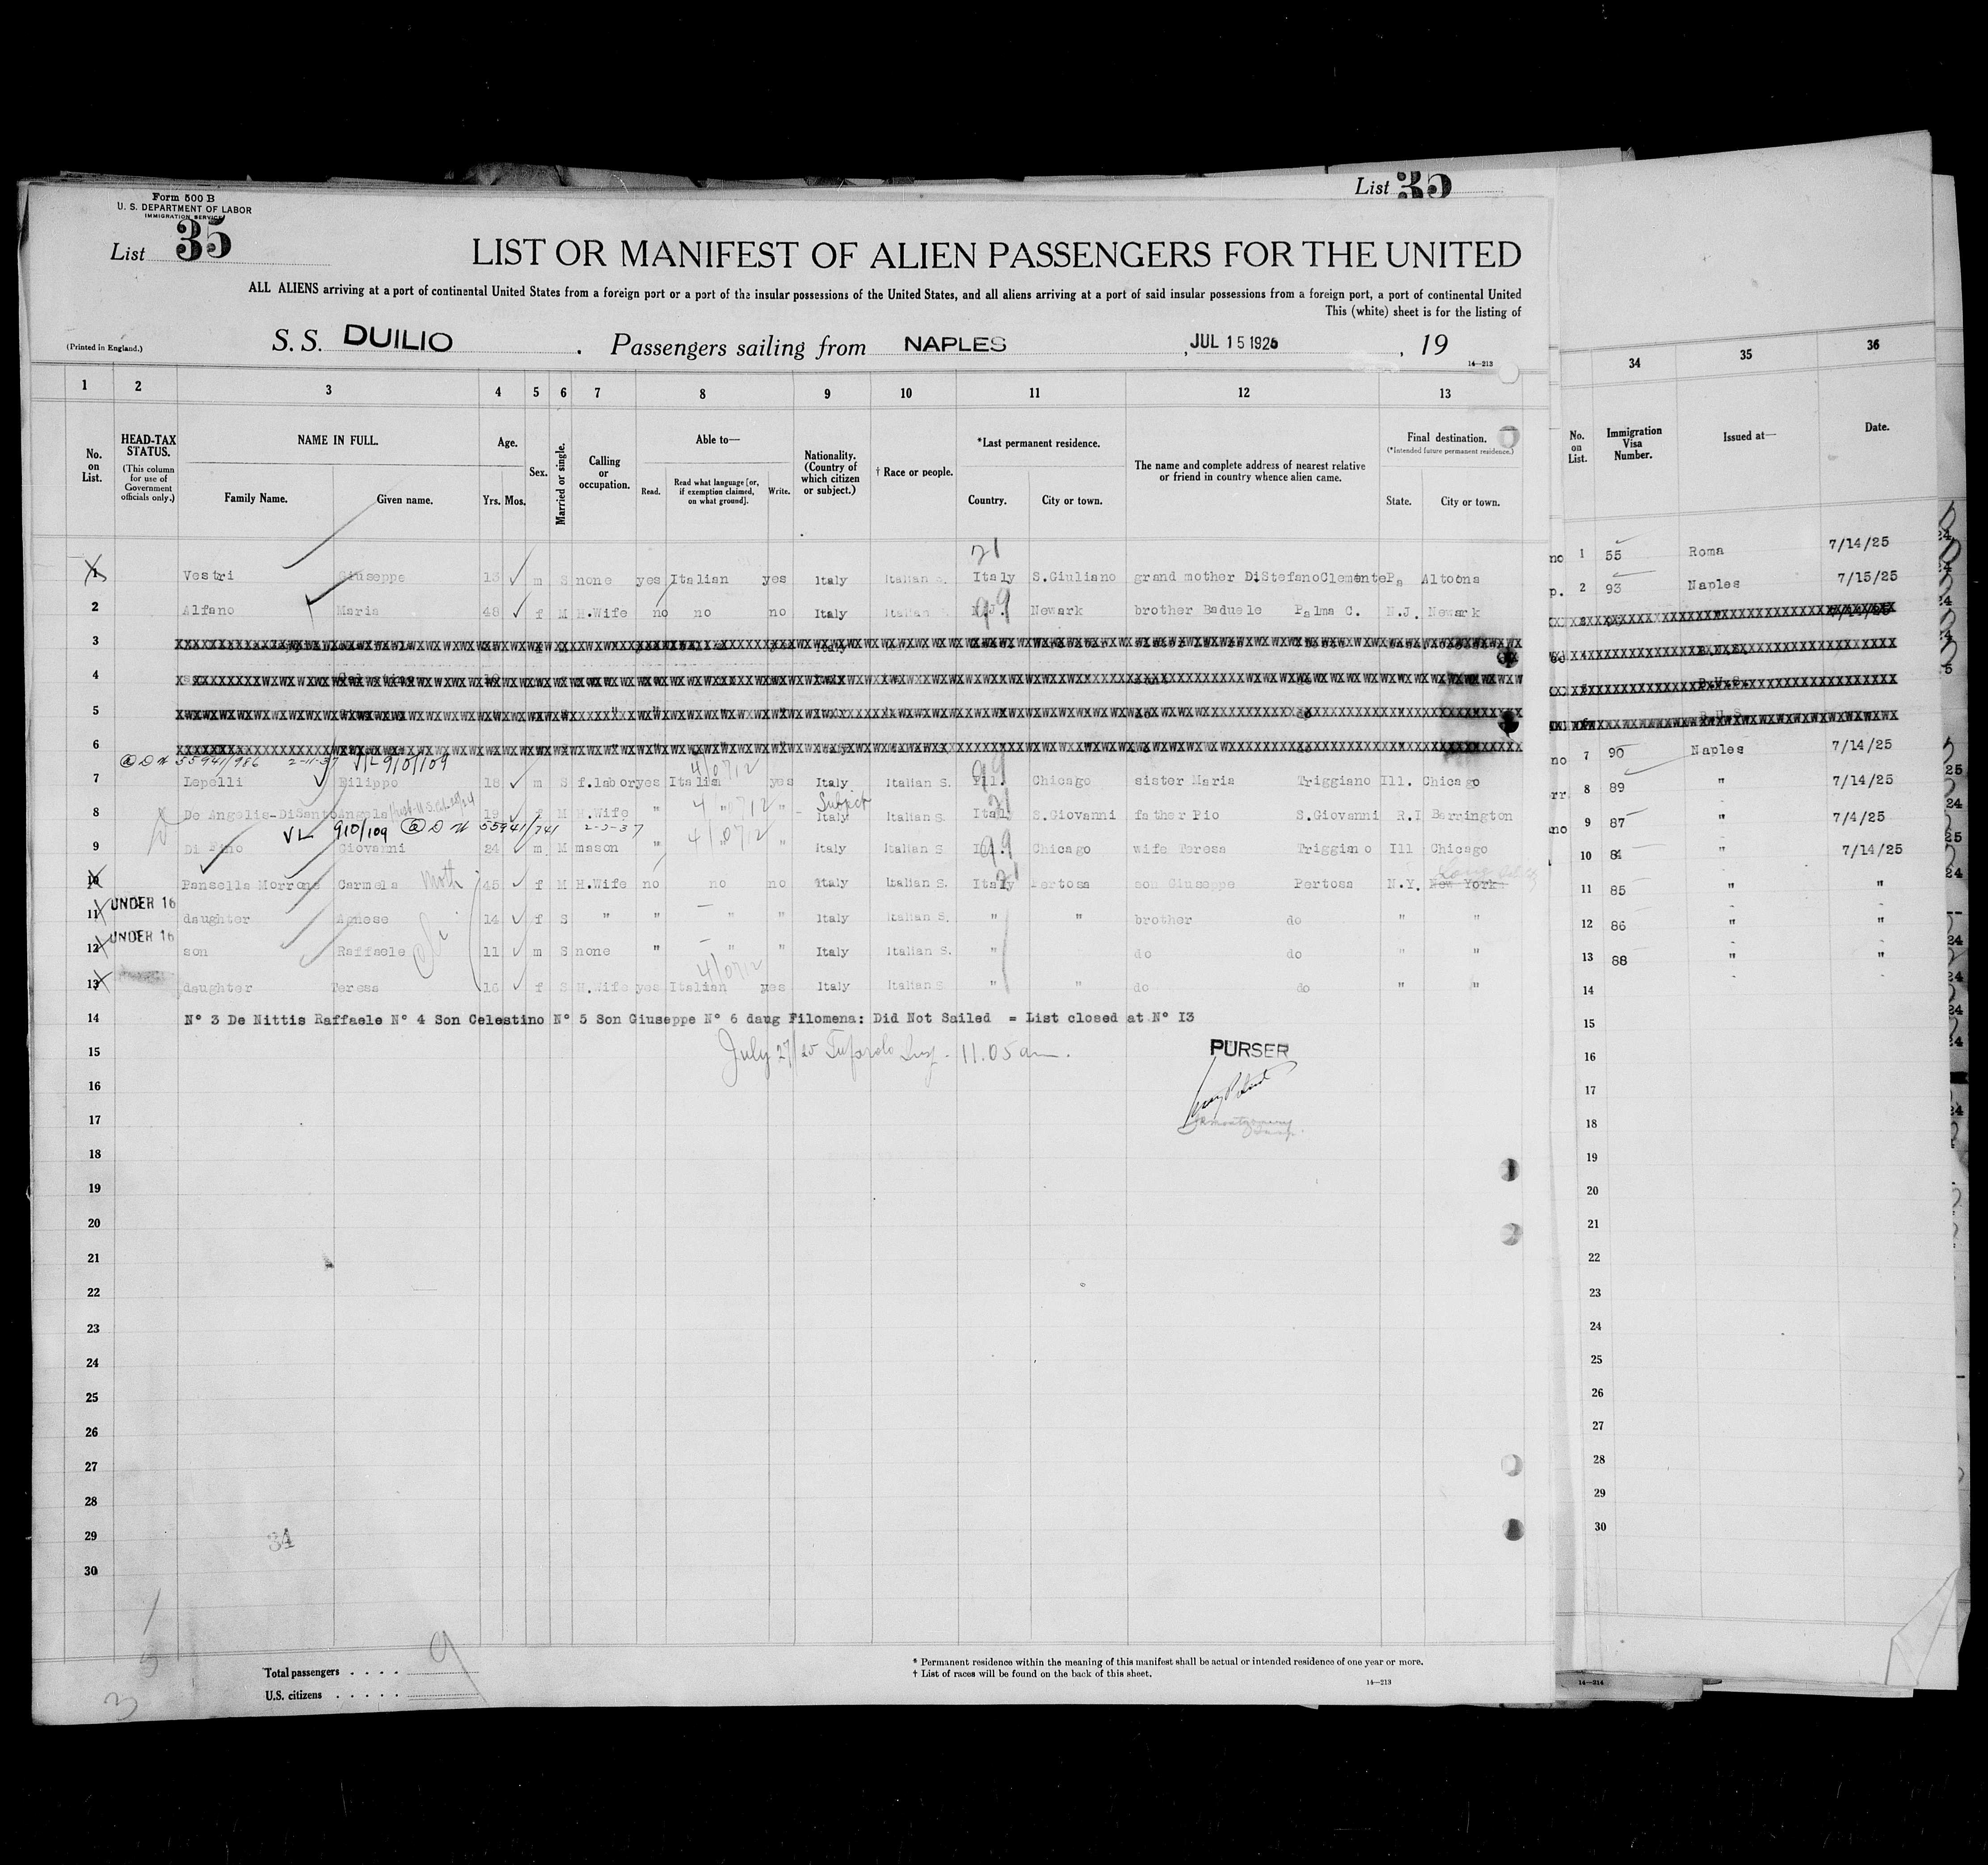 Form 500 B
U. S. DEPARTMENT OF LABOR
IMMIGRATION SERVICE
List 35
List 35
LIST OR MANIFEST OF ALIEN PASSENGERS FOR THE UNITED
ALL ALIENS arriving at a port of continental United States from a foreign port or a port of the insular possessions of the United States, and all aliens arriving at a port of said insular possessions from a foreign port, a port of continental United
This (white) sheet is for the listing of
(Printed in England.)
S. S. DUILIO . Passengers sailing from NAPLES , JUL 15 1925 , 19
14—213
1 2 3 4 5 6 7 8 9 10 11 12 13
No. on List.
HEAD-TAX STATUS.
(This column for use of Government officials only.)
NAME IN FULL.
Family Name. Given name.
Age.
Yrs. Mos.
Sex.
Married or single.
Calling or occupation.
Able to—
Read. Read what language [or, if exemption claimed, on what ground]. Write.
Nationality. (Country of which citizen or subject.)
† Race or people.
*Last permanent residence.
Country. City or town.
The name and complete address of nearest relative or friend in country whence alien came.
Final destination.
(*Intended future permanent residence.)
State. City or town.
21
1 Vestri Giuseppe 13 m S none yes Italian yes Italy Italian S. Italy S.Giuliano grand mother DiStefanoClemente Pa Altoona
99
2 Alfano Maria 48 f M H.Wife no no no Italy Italian S. N.J. Newark brother Baduele Palma C. N.J. Newark
3
4
5
6
@ D # 55941/986 2-11-37 VL 910/109 4/0712 99
7 Lepelli Filippo 18 m S f.labor yes Italian yes Italy Italian S. Ill. Chicago sister Maria Triggiano Ill. Chicago
4/0712 Subject 21
8 De Angelis-DiSanto Angela 19 f M H.Wife " " " Italy Italian S. Italy S.Giovanni father Pio S.Giovanni R.I Barrington
VL 910/109 @ D # 55941/741 2-3-37 4/0712 99
9 Di Fino Giovanni 24 m M mason " " Italy Italian S Ill. Chicago wife Teresa Triggiano Ill Chicago
21
10 Pansella Morrone Carmela 45 f M H.Wife no no no Italy Italian S. Italy Pertosa son Giuseppe Pertosa N.Y. New York
UNDER 16
11 daughter Agnese 14 f S " " " " Italy Italian S. " " brother do " "
UNDER 16
12 son Raffaele 11 m S none " " " Italy Italian S. " do do " "
4/0712
13 daughter Teresa 16 f S H.Wife yes Italian yes Italy Italian S. " " do do " "
14 N° 3 De Nittis Raffaele N° 4 Son Celestino N° 5 Son Giuseppe N° 6 daug Filomena: Did Not Sailed = List closed at N° I3
15 July 27/25 Insp. 11.05 am.
PURSER
16
17
18
19
20
21
22
23
24
25
26
27
28
29
34
30
9
3
Total passengers . . . .
U.S. citizens . . . . .
* Permanent residence within the meaning of this manifest shall be actual or intended residence of one year or more.
† List of races will be found on the back of this sheet.
14—213
34 35 36
No. on List.
Immigration Visa Number.
Issued at—
Date.
no 1 55 Roma 7/14/25
p. 2 93 Naples 7/15/25
no 7 90 Naples 7/14/25
rr. 8 89 " 7/14/25
no 9 87 " 7/4/25
10 84 " 7/14/25
11 85 " "
12 86 " "
13 88 " "
14
15
16
17
18
19
20
21
22
23
24
25
26
27
28
29
30
14—214